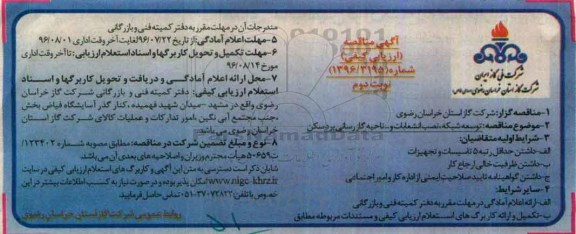 شرکت ملی گاز ایران
شرکت گاز استان خراسان رضوی
آگهی مناقصه
(ارزیابی کیفی)
شماره (۱۳۹۶/۳۱۹۵)
نوبت دوم
۱-مناقصه گزار: شرکت گاز استان خراسان رضوی
۲-موضوع مناقصه: توسعه شبکه، نصب انشعابات و ... ناحیه گازرسانی بردسکن
۳-شرایط اولیه متقاضیان:
الف-داشتن حداقل رتبه ۵ تاسیسات و تجهیزات
ب-داشتن ظرفیت خالی ارجاع کار
ج-داشتن گواهینامه تایید صلاحیت ایمنی از اداره کار و امور اجتماعی
۴-سایر شرایط:
الف-ارائه اعلام آمادگی در مهلت مقرر به دفتر کمیته فنی و بازرگانی
ب-تکمیل و ارائه کاربرگ های استعلام ارزیابی کیفی و مستندات مربوطه مطابق
مندرجات آن در مهلت مقرر به دفتر کمیته فنی و بازرگانی
۵-مهلت اعلام آمادگی: از تاریخ ۹۶/۰۷/۲۲ لغایت آخر وقت اداری ۹۶/۰۸/۰۱
۶-مهلت تکمیل و تحویل کاربرگها و اسناد استعلام ارزیابی: تا آخر وقت اداری
مورخ ۹۶/۰۸/۱۴
۷-محل ارائه اعلام آمادگی و دریافت و تحویل کاربرگها و اسناد
استعلام ارزیابی کیفی: دفتر کمیته فنی و بازرگانی شرکت گاز خراسان
رضوی واقع در مشهد -میدان شهید فهمیده، کنار گذر آسایشگاه فیاض بخش
،جنب مجتمع آبی نگین ،امور تدارکات و عملیات کالای شرکت گاز استان
خراسان رضوی می باشد.
۸-نوع و مبلغ تضمین شرکت در مناقصه: مطابق مصوبه شماره ۱۲۳۴۰۲/
ت۵۰۶۵۹ه هیأت محترم وزیران و اصلاحیه های بعدی آن می باشد.
شایان ذکر است دسترسی به متن این آگهی و کاربرگ های استعلام ارزیابی کیفی در سایت
www.nigc-khrz.ir امکان پذیر بوده و در صورت نیاز به کسب اطلاعات بیشتر در این
خصوص با تلفن ۳۷۰۷۲۸۳۲-۰۵۱ تماس حاصل فرمایید.
روابط عمومی شرکت گاز استان خراسان رضوی